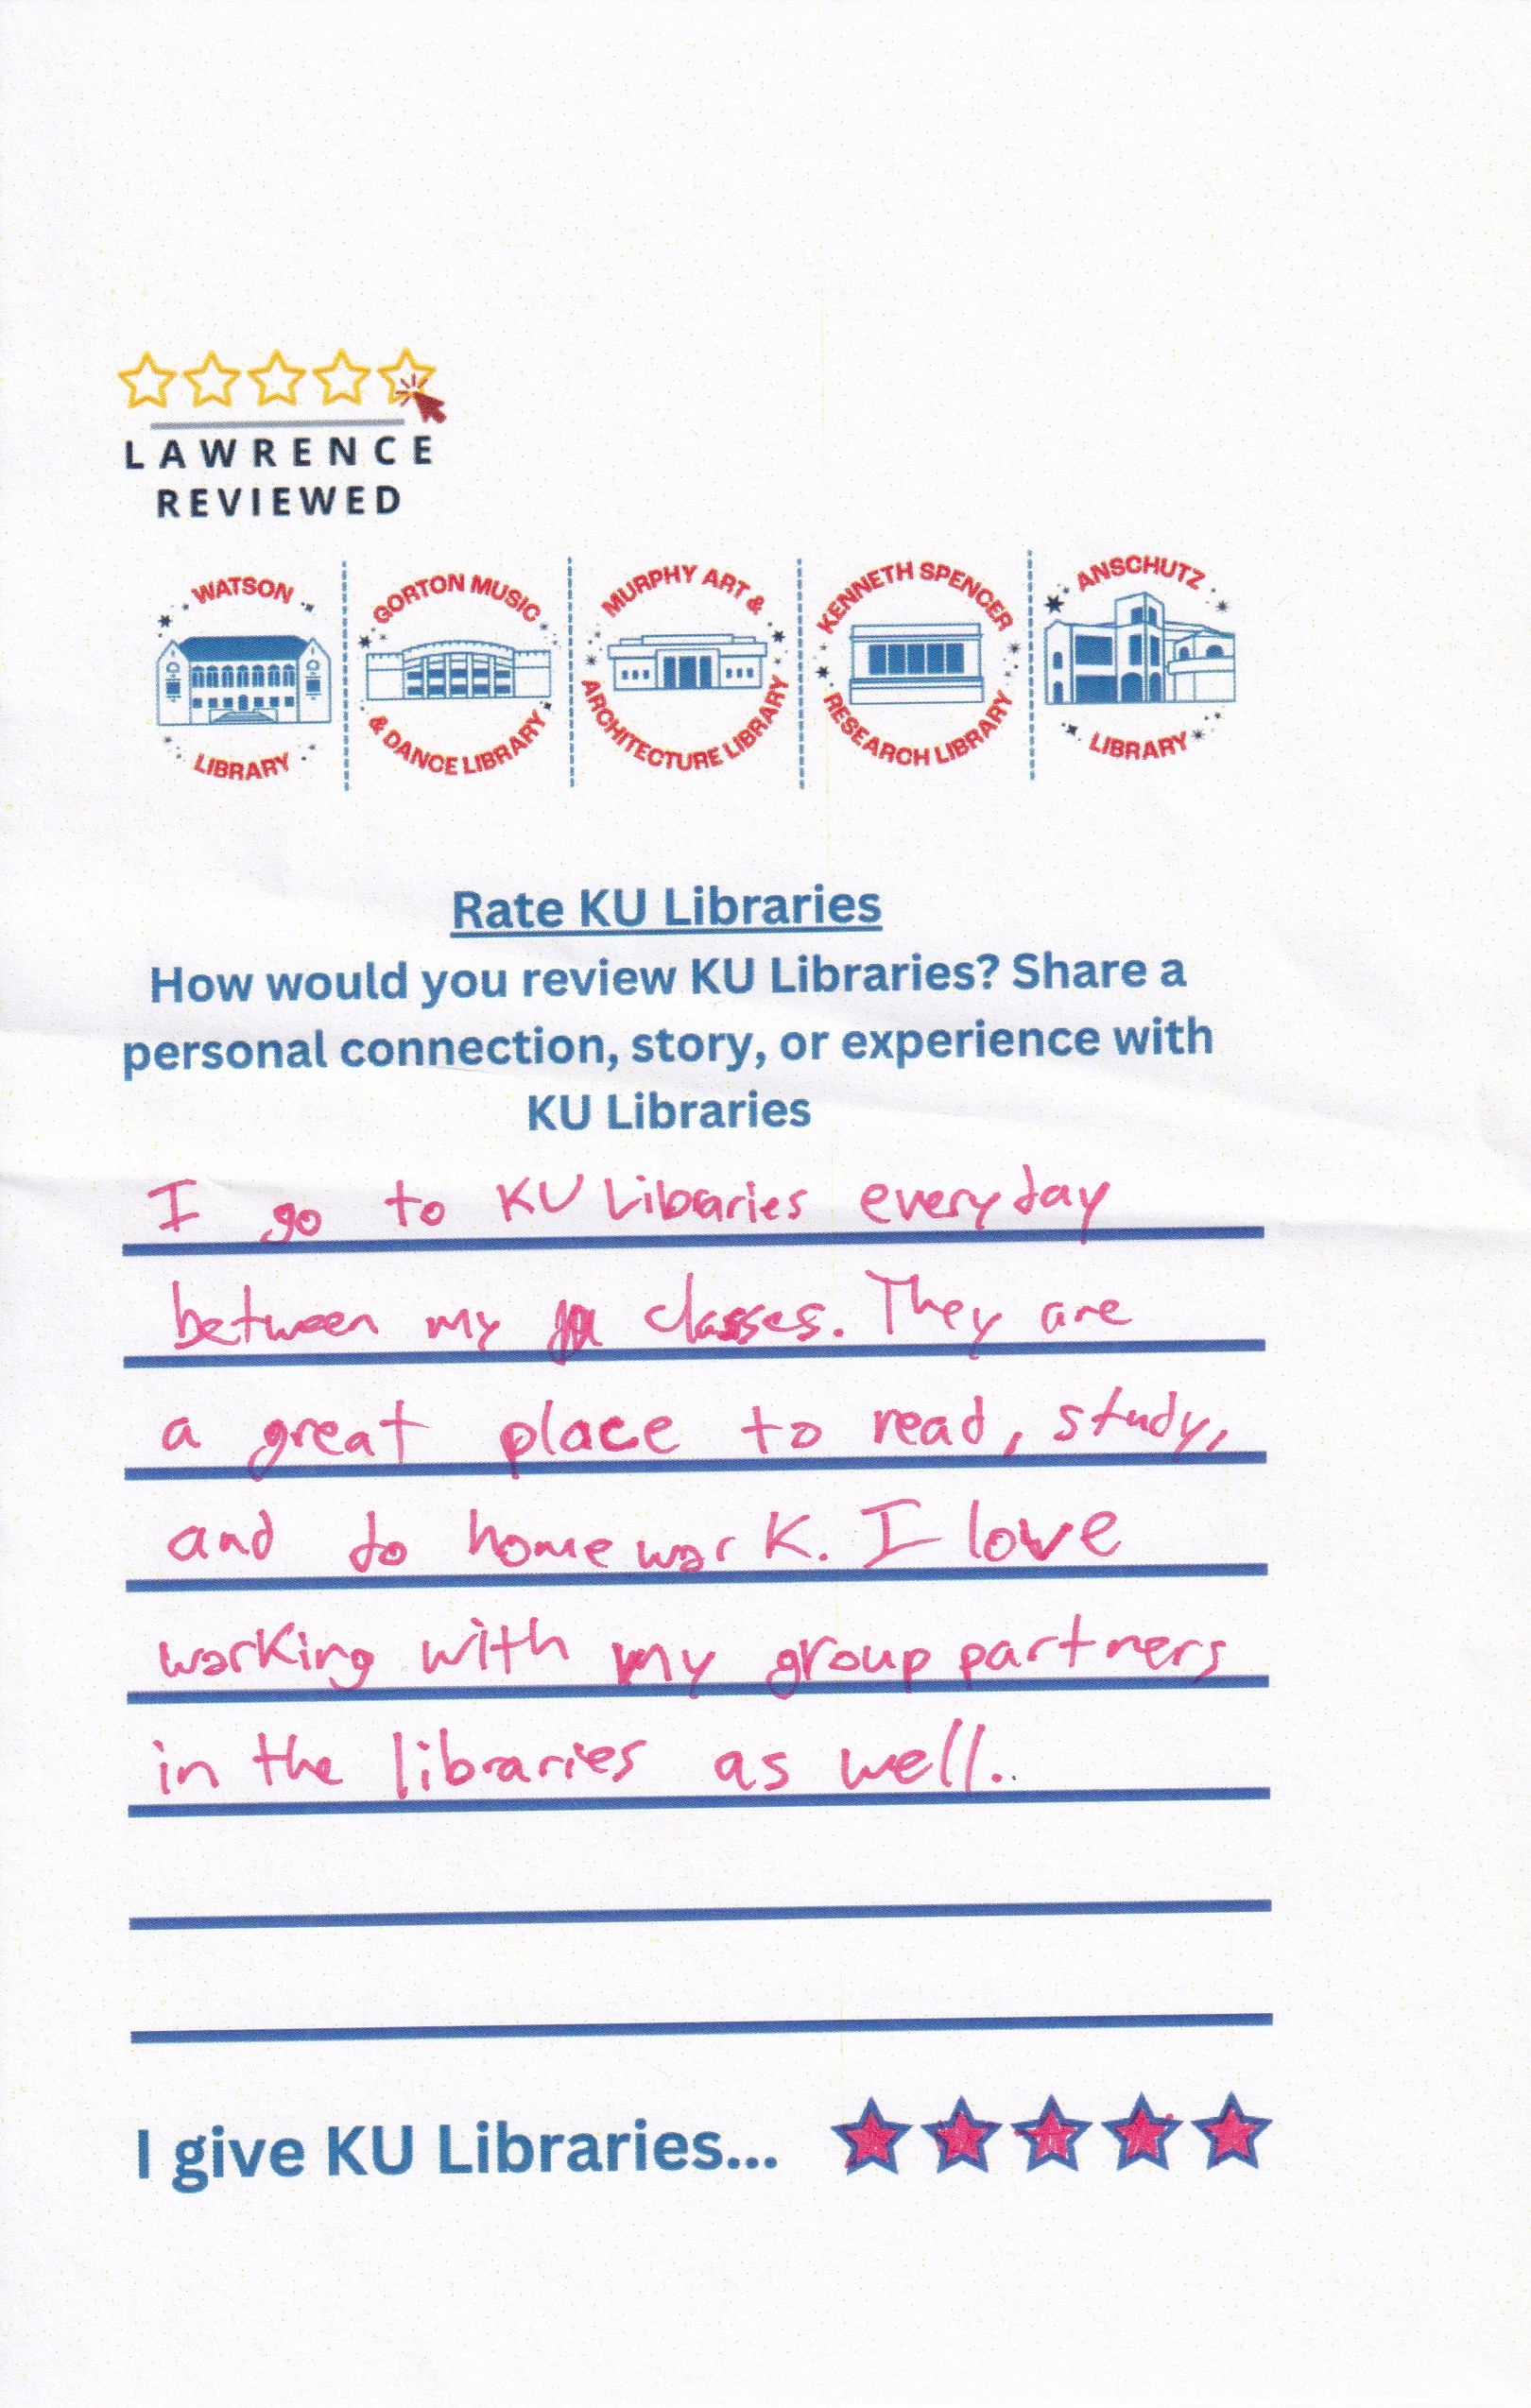 LAWRENCE
REVIEWED
WATSON
LIBRARY
GORTON MUSIC
& DANCE LIBRARY
MURPHY ART &
ARCHITECTURE LIBRARY
KENNETH SPENCER
RESEARCH LIBRARY
ANSCHUTZ
LIBRARY
Rate KU Libraries
How would you review KU Libraries? Share a
personal connection, story, or experience with
KU Libraries
I go to KU Libraries everyday
between my classes. They are
a great place to read, study,
and do homework. I love
working with my group partners
in the libraries as well.
I give KU Libraries...